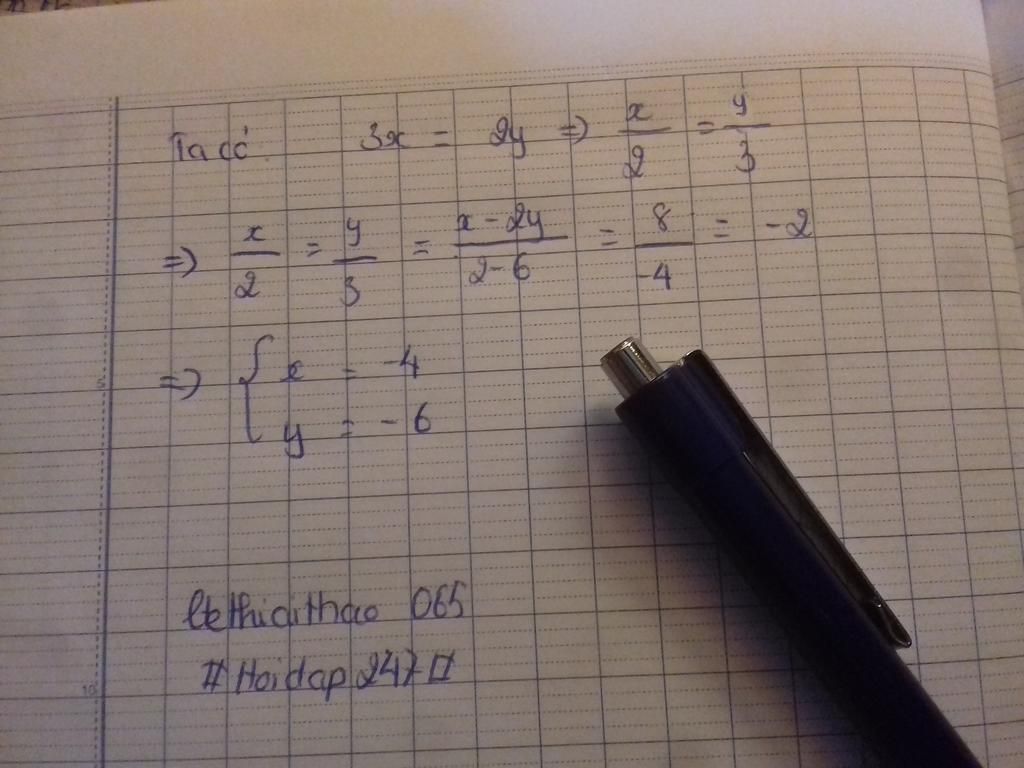 Ta có 3x = 2y => x/2 = y/3
=> x/2 = y/3 = x - 2y / 2 - 6 = 8 / -4 = -2
=> { x = -4
y = -6
lethidithao 065
# Hoidap 247 #